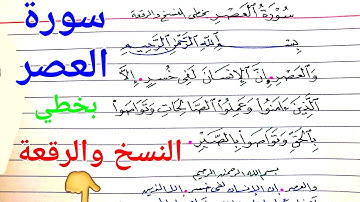 سُورَةُ الْعَصْرِ بخطي النسخ والرقعة
سورة
بِسْمِ اللَّهِ الرَّحْمَٰنِ الرَّحِيمِ
العصر
وَالْعَصْرِ • إِنَّ الْإِنْسَانَ لَفِي خُسْرٍ • إِلَّا
بخطي
الَّذِينَ ءَامَنُوا وَعَمِلُوا الصَّالِحَاتِ وَتَوَاصَوْا
بِالْحَقِّ وَتَوَاصَوْا بِالصَّبْرِ •
النسخ والرقعة
بسم الله الرحمن الرحيم
والعصر • إن الإنسان لفي خسر • إلا الذين